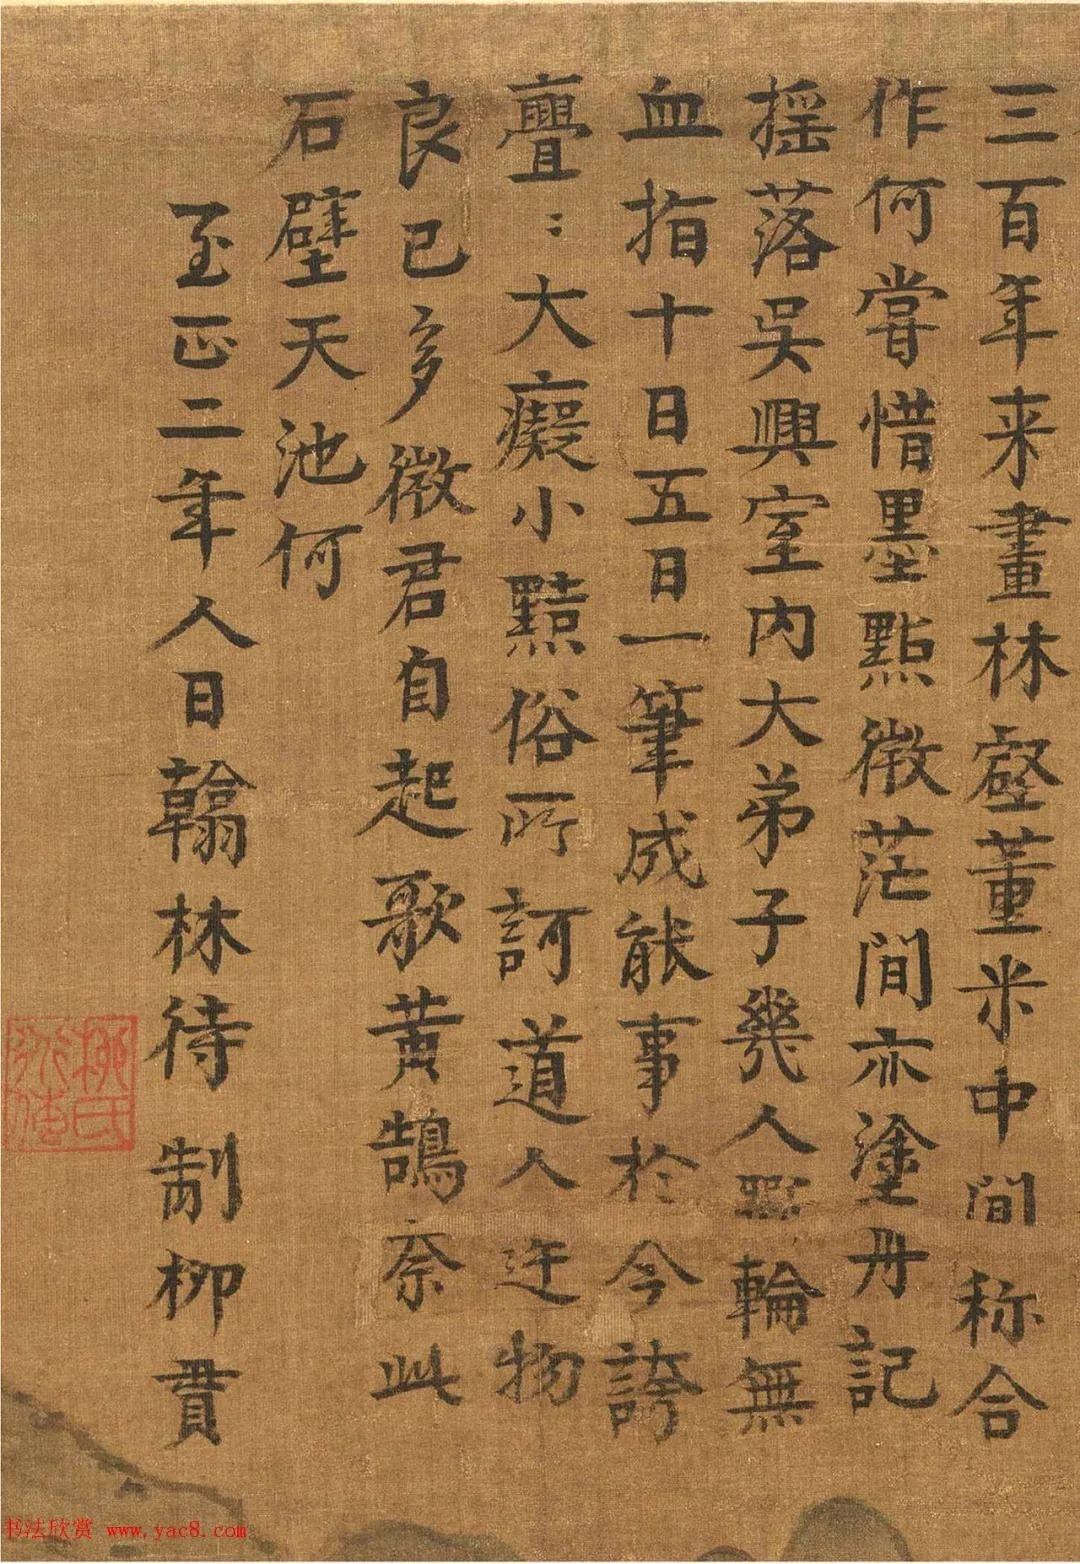 三百年来畫林壑董米中間称合
作何嘗惜墨點微茫間亦塗丹記
揺落吳興室內大弟子幾人斲輪無
血指十日五日一筆成能事於今誇
亹〻大癡小黠俗所訶道人迂物
良已多徵君自起歌黄鵠奈此
石壁天池何
至正二年人日翰林待制柳貫
书法欣赏 www.yac8.com